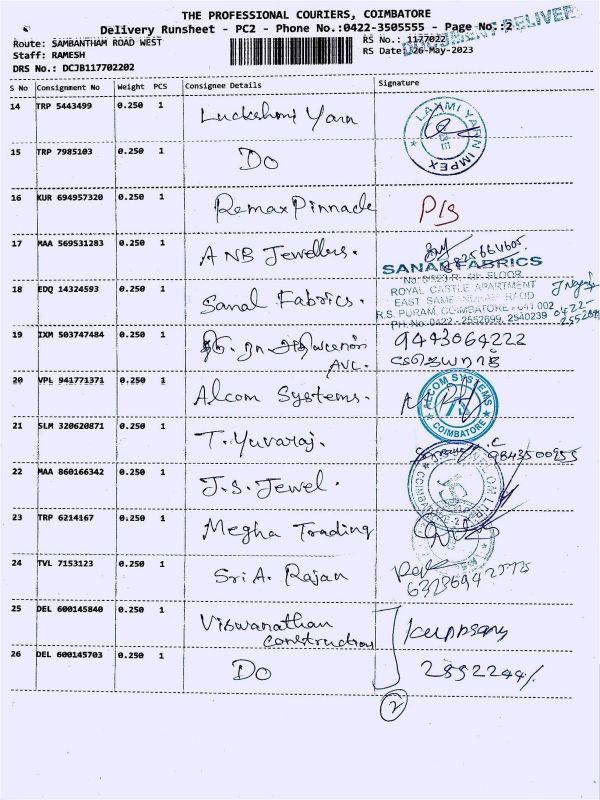 THE PROFESSIONAL COURIERS, COIMBATORE
Delivery Runsheet - PC2 - Phone No.:0422-3505555 - Page No.:2
Route: SAMBANTHAM ROAD WEST RS No.: 1177022
Staff: RAMESH RS Date: 26-May-2023
DRS No.: DCJB117702202
S No Consignment No Weight PCS Consignee Details Signature
14 TRP 5443499 0.250 1 Luckshmi Yarn LAXMI YARN IMPEX
15 TRP 7985103 0.250 1 Do
16 KUR 694957320 0.250 1 Remax Pinnacle P/s
17 MAA 569531283 0.250 1 ANB Jewellers.
SANAL FABRICS
18 EDQ 14324593 0.250 1 Sanal Fabrics.
ROYAL CASTLE APARTMENT
R.S. PURAM, COIMBATORE - 641 002
PH.No:0422 - 2552699, 2540239
19 IXM 503747484 0.250 1 AVC. 9443064222
20 VPL 941771371 0.250 1 Alcom Systems. ALCOM SYSTEMS COIMBATORE
21 SLM 320620871 0.250 1 T. Yuvaraj. 9843500955
22 MAA 860166342 0.250 1 J.S. Jewel.
23 TRP 6214167 0.250 1 Megha Trading
24 TVL 7153123 0.250 1 Sri A. Rajan
25 DEL 600145840 0.250 1 Viswanathan
construction
26 DEL 600145703 0.250 1 Do 2552244/.
2